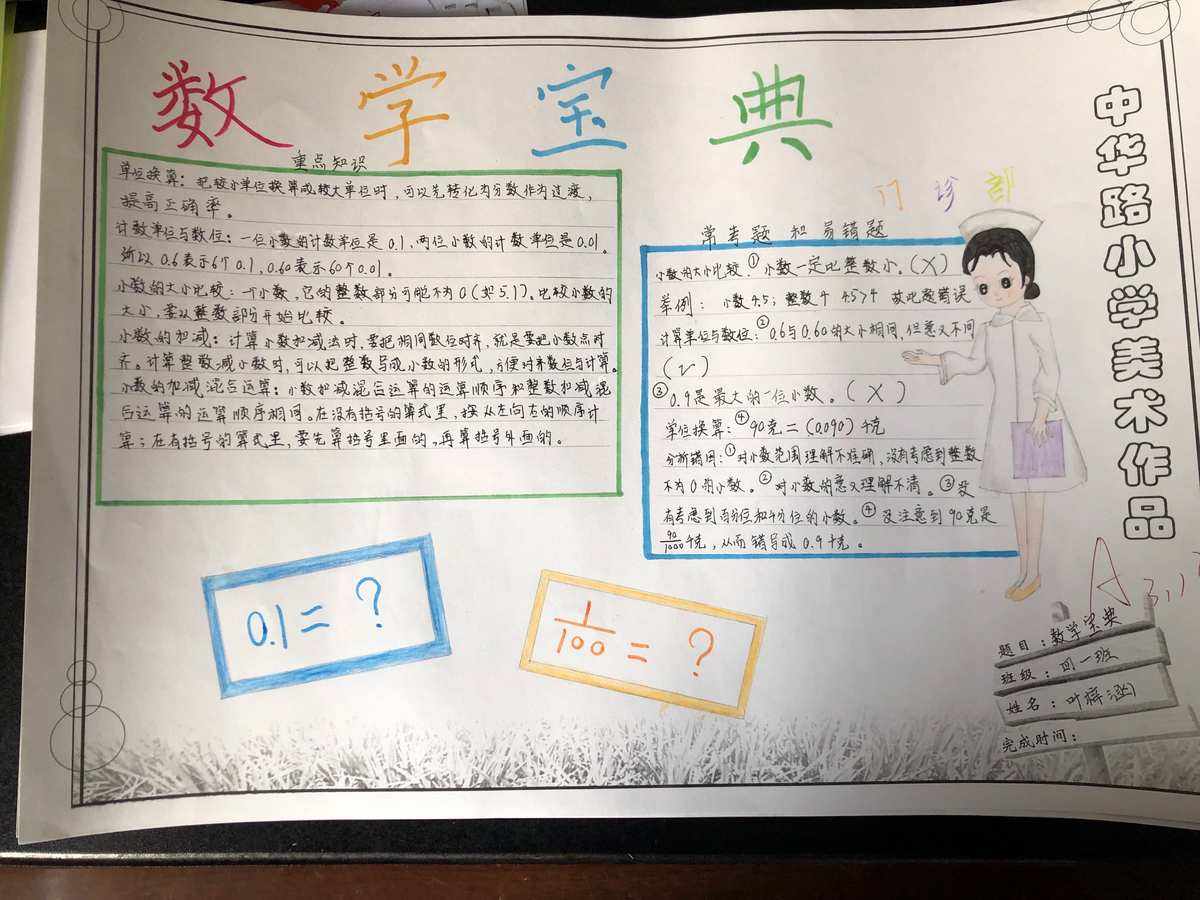 数学宝典
重点知识
单位换算：把较小单位换算成较大单位时，可以先转化为分数作为过渡，
提高正确率。
计数单位与数位：一位小数的计数单位是0.1，两位小数的计数单位是0.01。
所以0.6表示6个0.1，0.60表示60个0.01。
小数的大小比较：一个小数，它的整数部分可能不为0(如5.1)。比较小数的
大小，要从整数部分开始比较。
小数的加减：计算小数加减法时，要把相同数位对齐，就是要把小数点对
齐。计算整数减小数时，可以把整数写成小数的形式，方便对齐数位与计算。
小数的加减混合运算：小数加减混合运算的运算顺序和整数加减混
合运算的运算顺序相同。在没有括号的算式里，按从左向右的顺序计
算；在有括号的算式里，要先算括号里面的，再算括号外面的。
门诊部
常考题和易错题
小数的大小比较：①小数一定比整数小。(×)
举例：小数4.5；整数4 4.5>4 故此题错误
计算单位与数位：②0.6与0.60的大小相同，但意义不同
(√)
③0.9是最大的一位小数。(×)
单位换算：④90克=(0.090)千克
分析错因：①对小数范围理解不准确，没有考虑到整数
不为0的小数。②对小数的意义理解不清。③没
有考虑到百分位和千分位的小数。④没注意到90克是
90/1000千克，从而错写成0.9千克。
0.1=？
1/100=？
中华路小学美术作品
A
题目：数学宝典
班级：四一班
姓名：叶梓涵
完成时间：